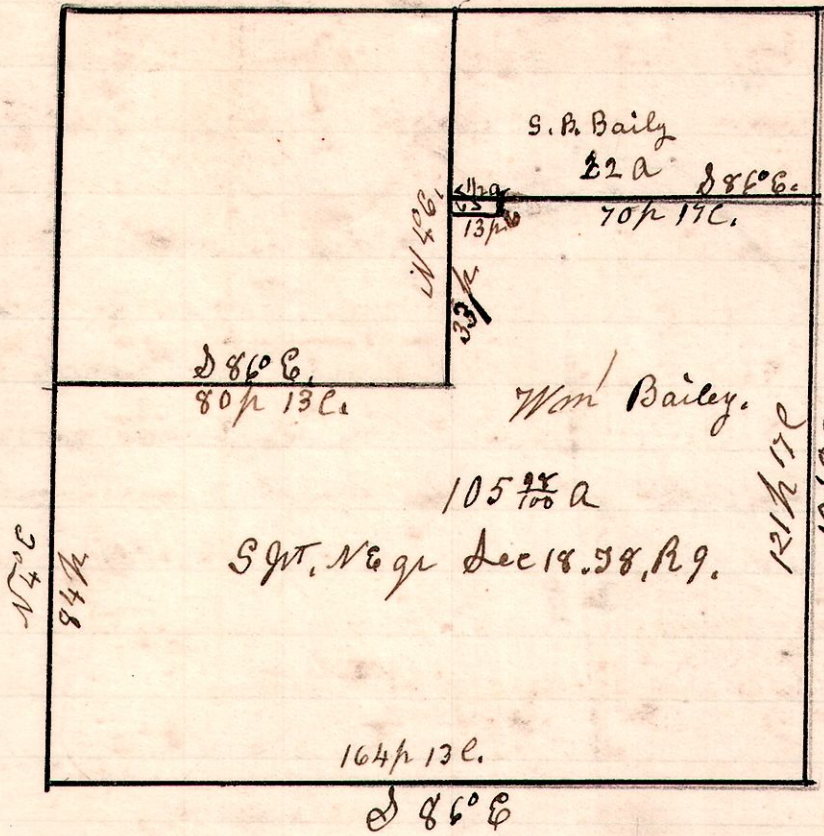 S. B. Baily
22 a
S 86° E.
70 p 17 C.
N 4° E.
1/2 a
13 p
33 p
S 86° E.
80 p 13 C.
Wm Bailey.
105 98/100 a
S pt. N E qr Sec 18. T 8, R 9.
121 p 17 C
N 4° E
84 p
164 p 13 C.
S 86° E